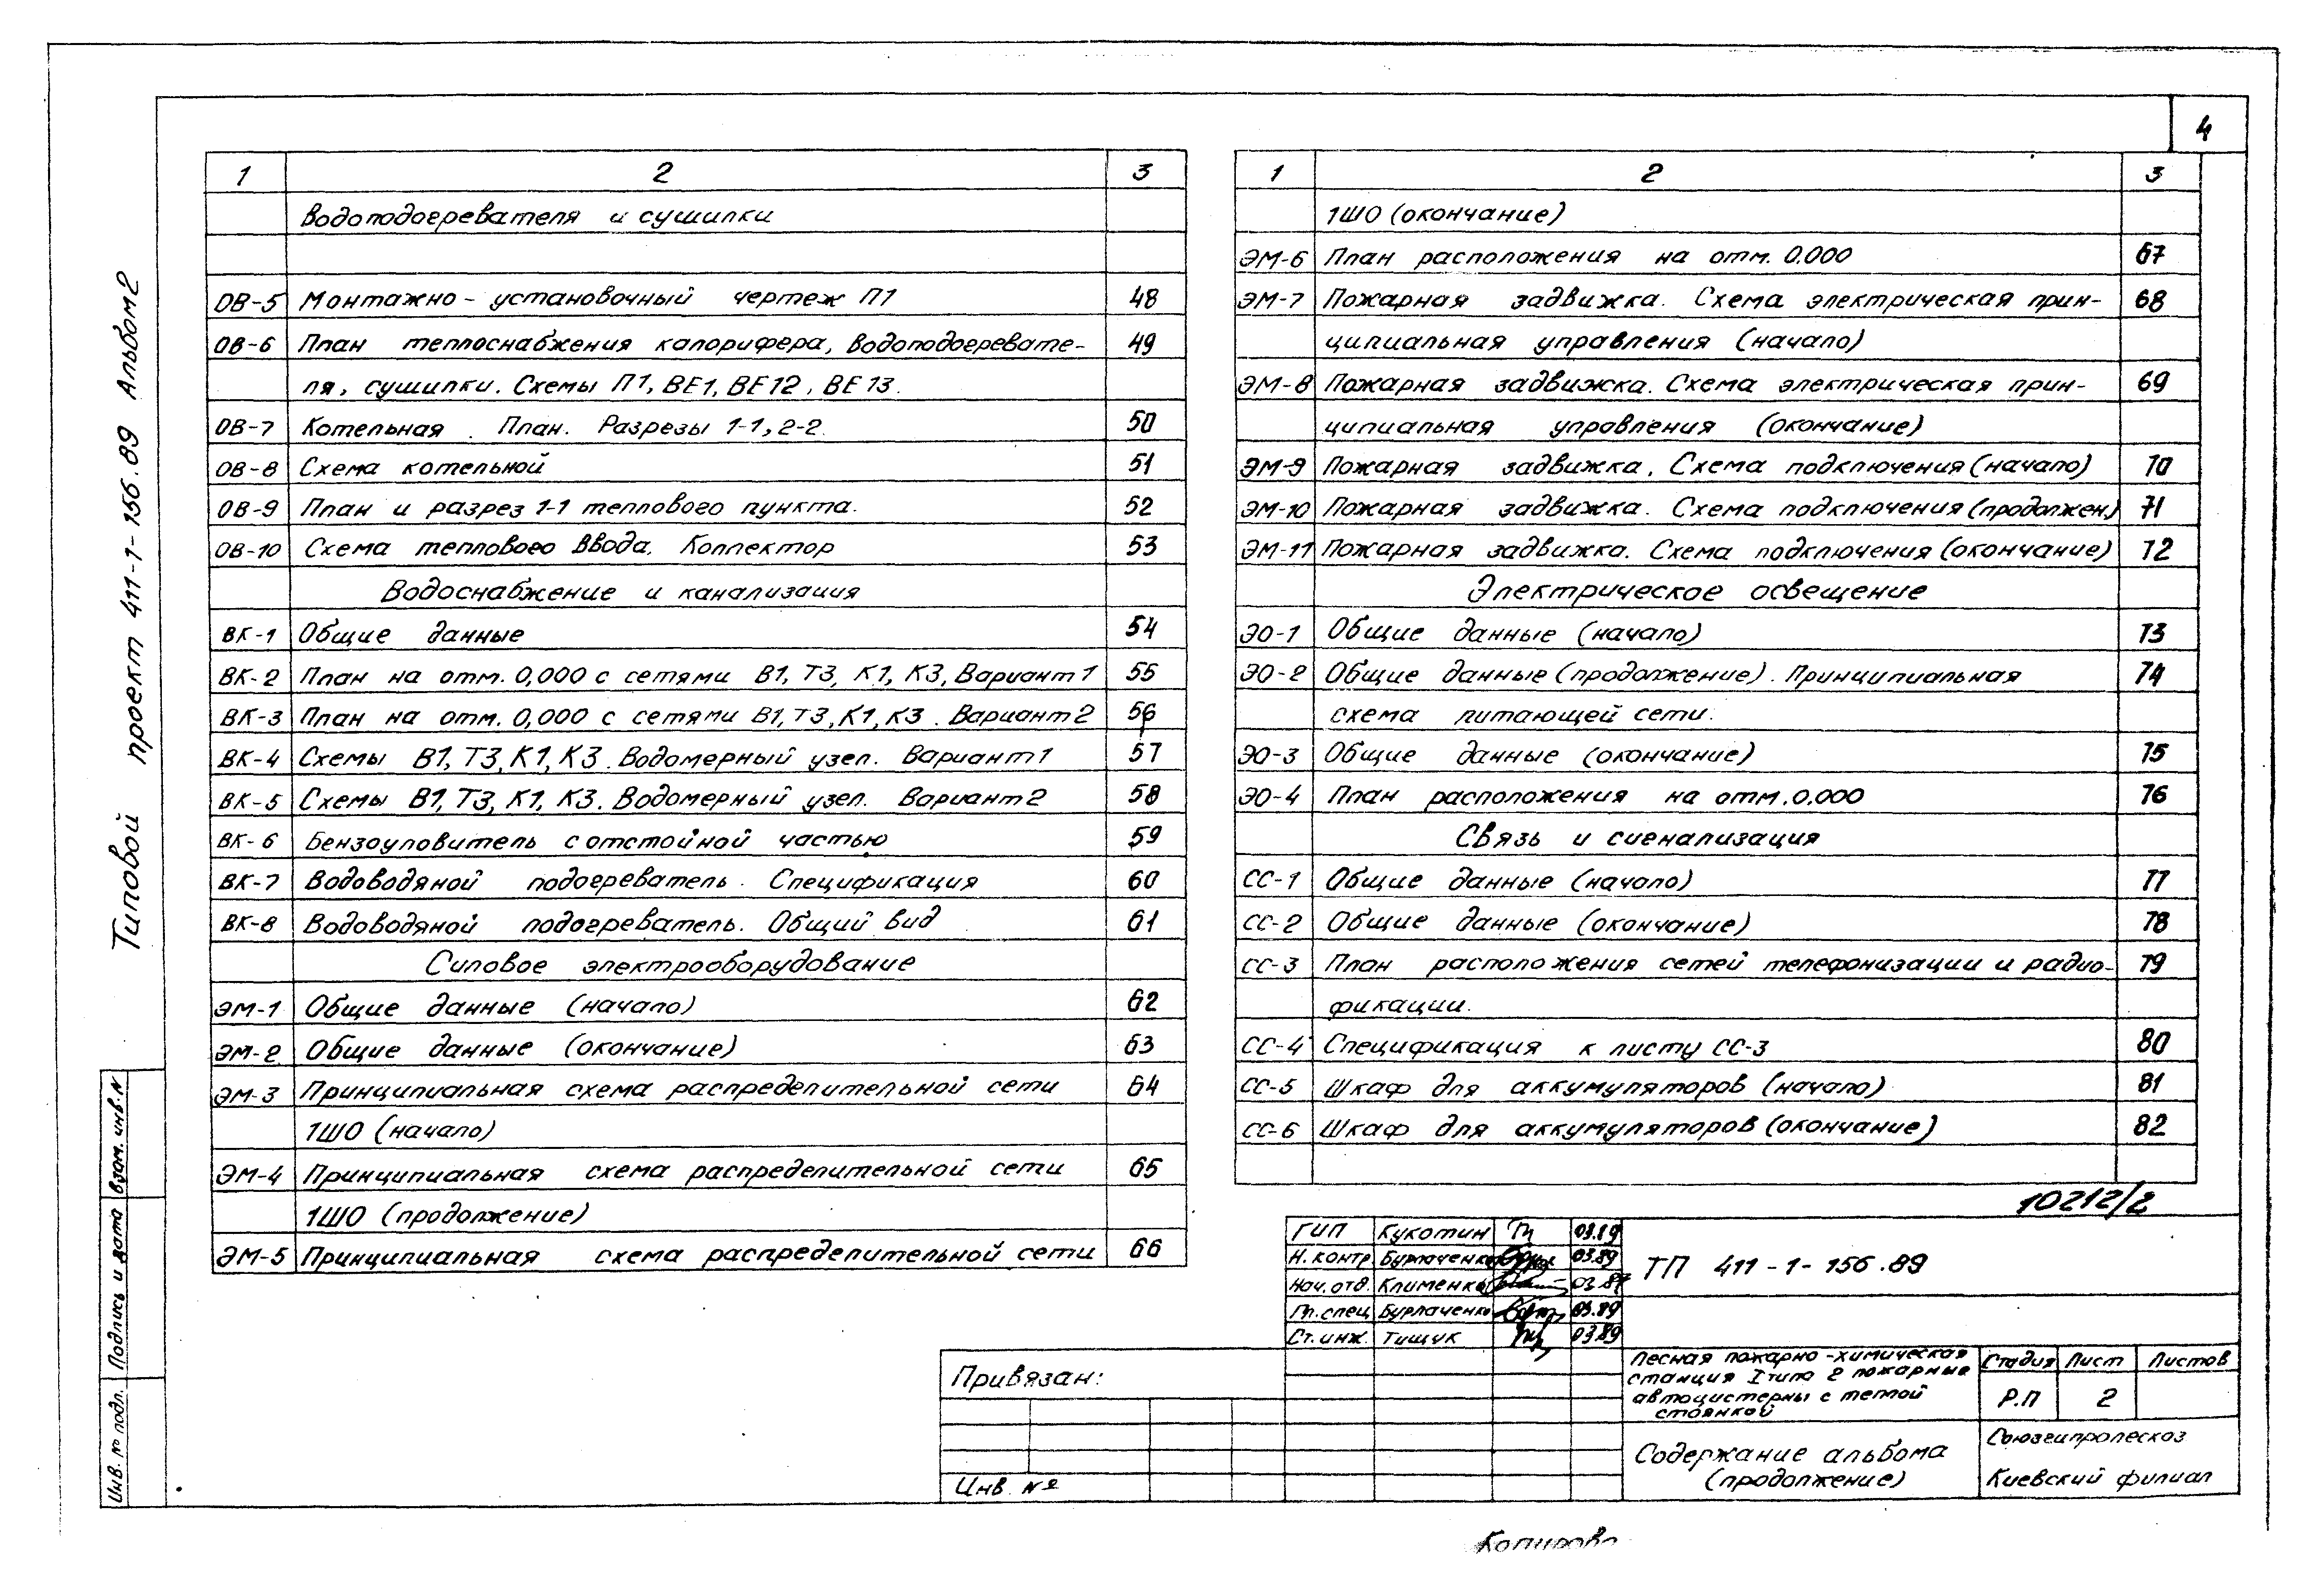 4
1 2 3
водоподогревателя и сушилки
ОВ-5 Монтажно-установочный чертеж П1 48
ОВ-6 План теплоснабжения калорифера, водоподогревате- 49
ля, сушилки. Схемы П1, ВЕ1, ВЕ12, ВЕ13.
ОВ-7 Котельная. План. Разрезы 1-1, 2-2. 50
ОВ-8 Схема котельной 51
ОВ-9 План и разрез 1-1 теплового пункта. 52
ОВ-10 Схема теплового ввода. Коллектор 53
Водоснабжение и канализация
ВК-1 Общие данные 54
ВК-2 План на отм. 0,000 с сетями В1, Т3, К1, К3, Вариант 1 55
ВК-3 План на отм. 0,000 с сетями В1, Т3, К1, К3. Вариант 2 56
ВК-4 Схемы В1, Т3, К1, К3. Водомерный узел. Вариант 1 57
ВК-5 Схемы В1, Т3, К1, К3. Водомерный узел. Вариант 2 58
ВК-6 Бензоуловитель с отстойной частью 59
ВК-7 Водоводяной подогреватель. Спецификация 60
ВК-8 Водоводяной подогреватель. Общий вид 61
Силовое электрооборудование
ЭМ-1 Общие данные (начало) 62
ЭМ-2 Общие данные (окончание) 63
ЭМ-3 Принципиальная схема распределительной сети 64
1ШО (начало)
ЭМ-4 Принципиальная схема распределительной сети 65
1ШО (продолжение)
ЭМ-5 Принципиальная схема распределительной сети 66
1 2 3
1ШО (окончание)
ЭМ-6 План расположения на отм. 0.000 67
ЭМ-7 Пожарная задвижка. Схема электрическая прин- 68
ципиальная управления (начало)
ЭМ-8 Пожарная задвижка. Схема электрическая прин- 69
ципиальная управления (окончание)
ЭМ-9 Пожарная задвижка. Схема подключения (начало) 70
ЭМ-10 Пожарная задвижка. Схема подключения (продолжен.) 71
ЭМ-11 Пожарная задвижка. Схема подключения (окончание) 72
Электрическое освещение
ЭО-1 Общие данные (начало) 73
ЭО-2 Общие данные (продолжение). Принципиальная 74
схема питающей сети.
ЭО-3 Общие данные (окончание) 75
ЭО-4 План расположения на отм. 0.000 76
Связь и сигнализация
СС-1 Общие данные (начало) 77
СС-2 Общие данные (окончание) 78
СС-3 План расположения сетей телефонизации и радио- 79
фикации.
СС-4 Спецификация к листу СС-3 80
СС-5 Шкаф для аккумуляторов (начало) 81
СС-6 Шкаф для аккумуляторов (окончание) 82
10212/2
ГИП Кукотин 03.89
Н. контр. Бурлаченко 03.89
Нач. отд. Клименко 03.89
Гл. спец. Бурлаченко 03.89
Ст. инж. Тищук 03.89
ТП 411-1-156.89
Привязан:
Инв. №
Лесная пожарно-химическая
станция I типа 2 пожарные
автоцистерны с теплой
стоянкой
Стадия Лист Листов
Р.П 2
Содержание альбома
(продолжение)
Союзгипролесхоз
Киевский филиал
Копирова
Типовой проект 411-1-156.89 Альбом 2
Взам. инв. №
Подпись и дата
Инв. № подл.